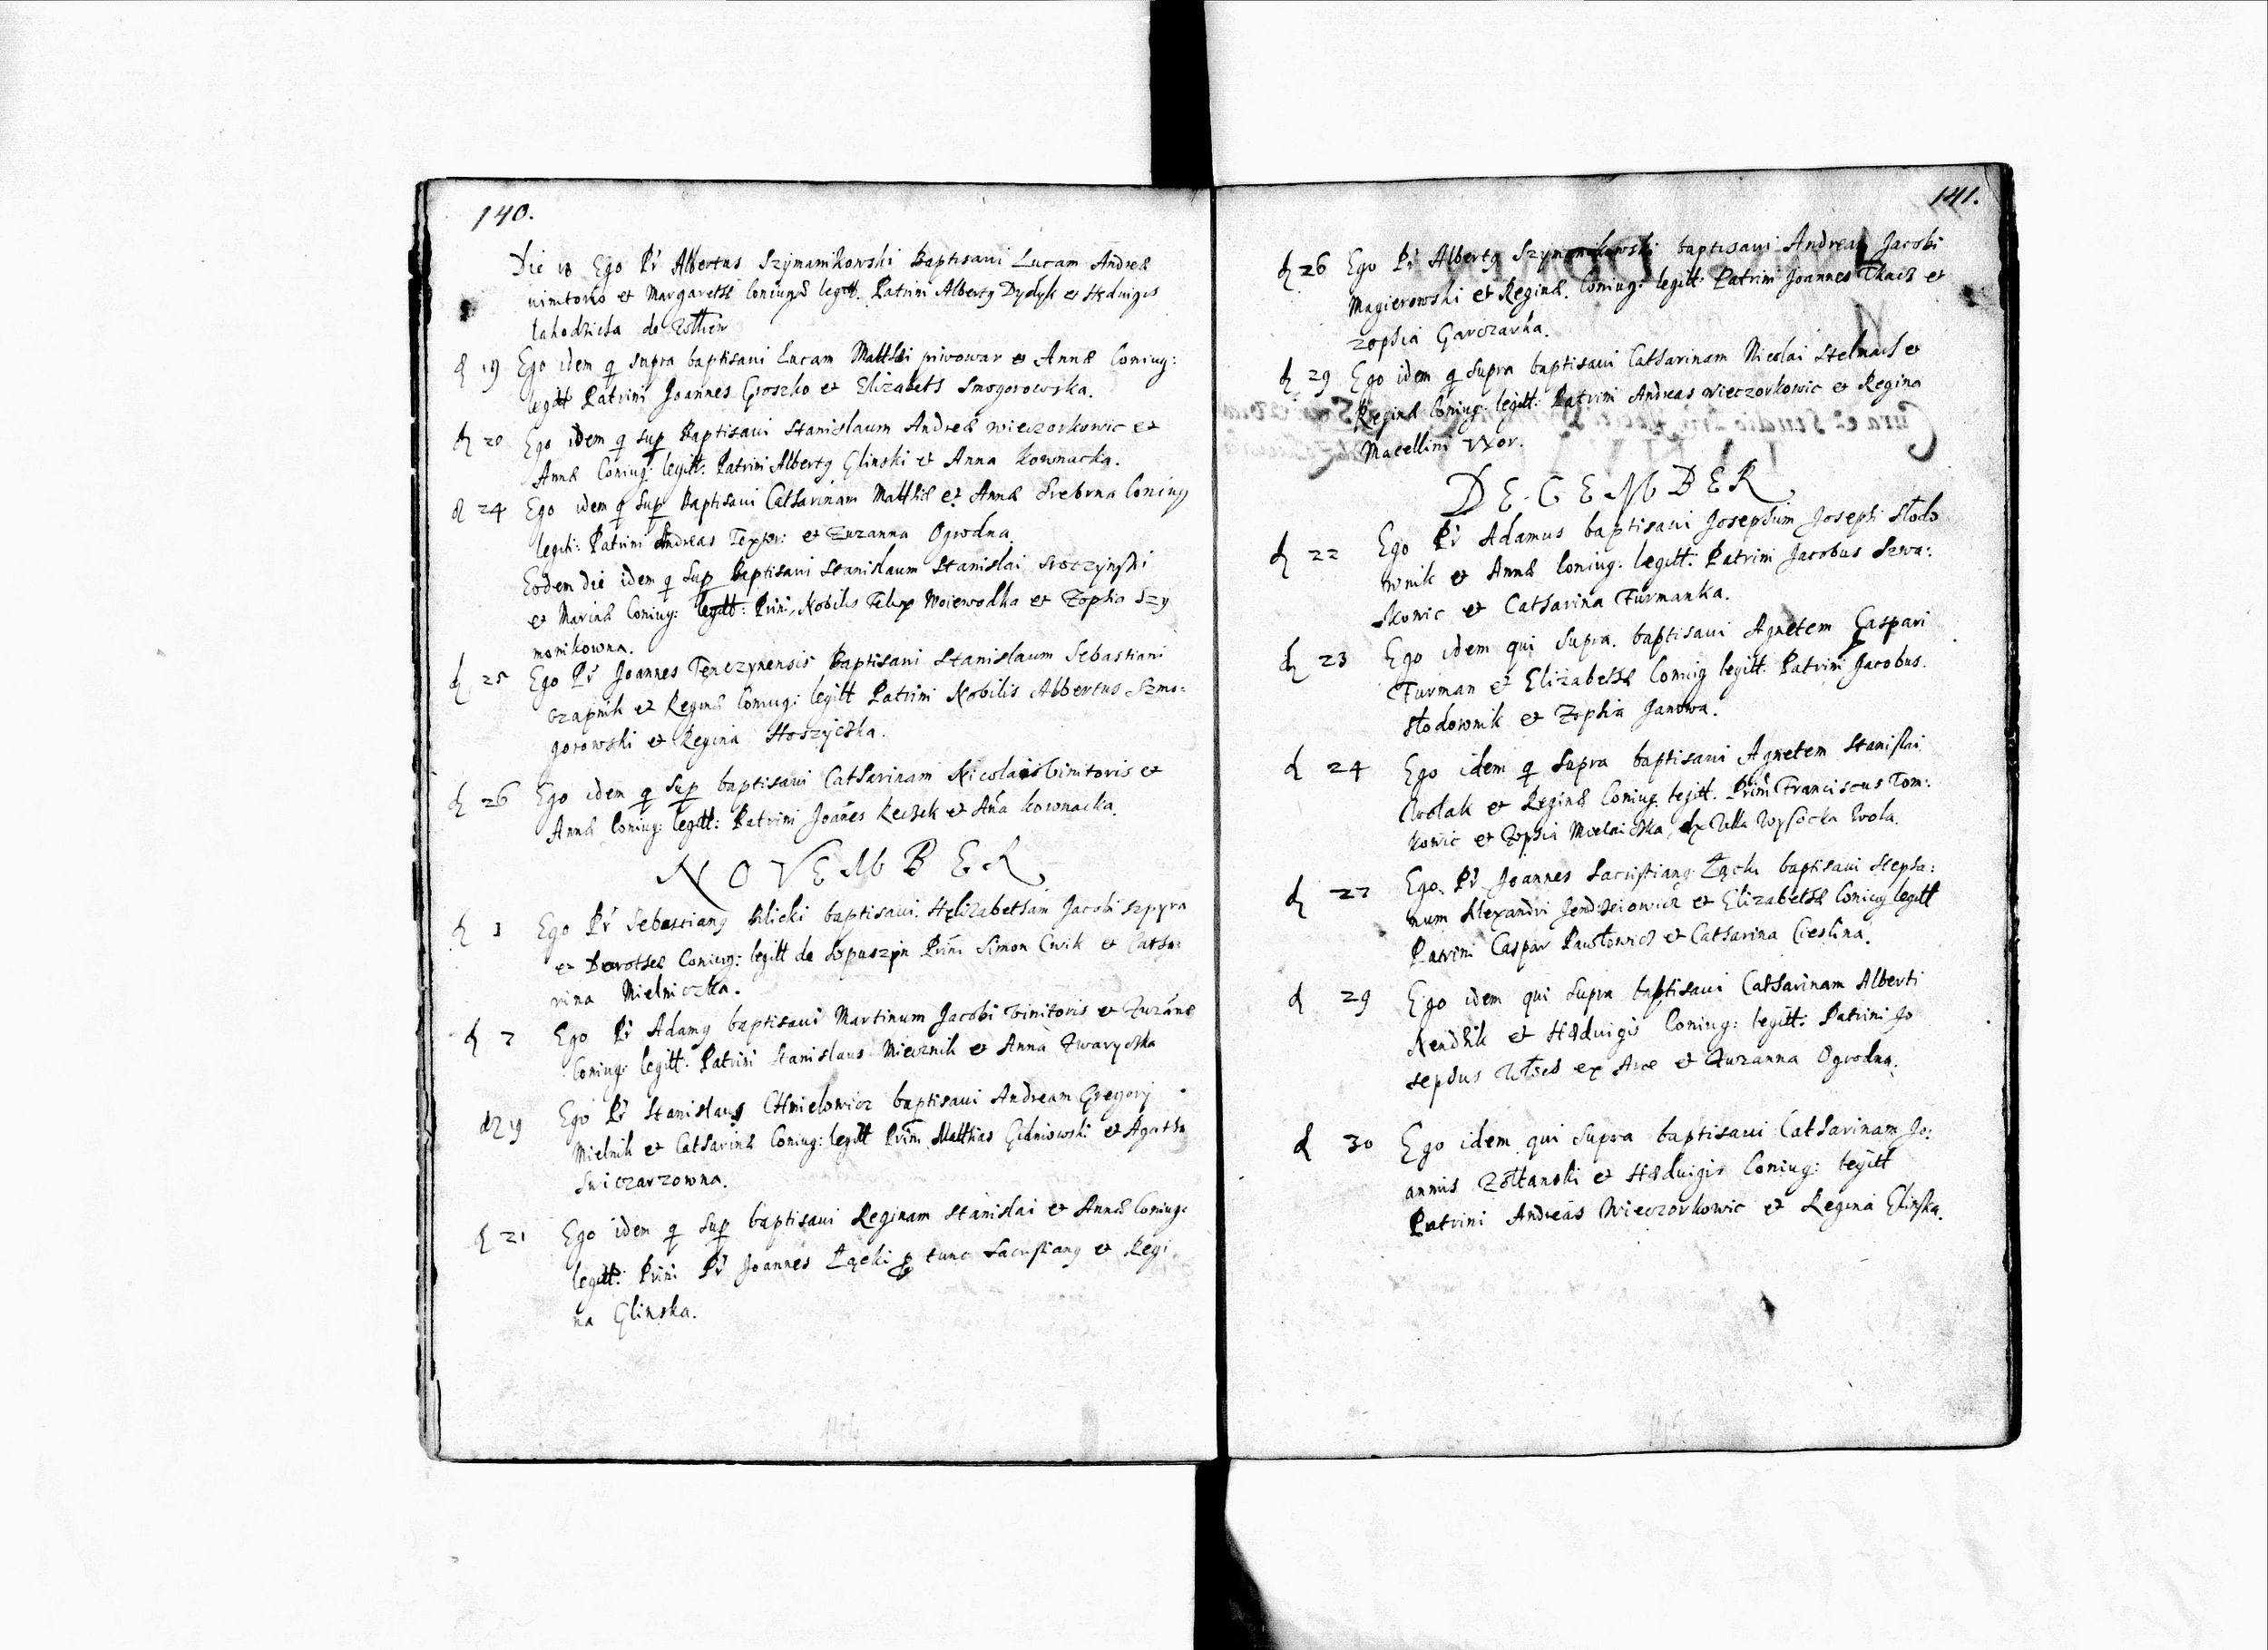 140.
Die 18 Ego Pr Albertus Szymanikowski Baptisaui Lucam Andreæ
uinitoris et Margarethæ Coniugũ legitt. Patrini Albertg Dydyk et Hedwigis
d 19 Ego idem q supra baptisaui Lucam Matthæi piwowar et Annæ Coniug:
legitt Patrini Joannes Groszko et Elizabeth Smogorowska.
d 20 Ego idem q sup Baptisaui Stanislaum Andreæ wieczorkowic et
Annæ Coniug: legitt: Patrini Albertg Glinski et Anna Kownacka.
d 24 Ego idem q sup Baptisaui Catharinam Matthiæ et Annæ Srebrna Coniug
legitt: Patrini Andreas Textor: et Zuzanna Ogrodna.
Eodem die idem q sup Baptisaui Stanislaum Stanislai Sroczynski
et Marinæ Coniug: legitt: Prini, Nobilis Felix Woiewodka et Zophia Szy
monikowna.
d 25 Ego Pr Joannes Tenczynensis Baptisaui Stanislaum Sebastiani
Czapnik et Reginæ Coniug: legitt Patrini Nobilis Albertus Smo:
gorowski et Regina Hoszyczka.
d 26 Ego idem q sup baptisaui Catharinam Nicolai Vinitoris et
Annæ Coniug: legitt: Patrini Joañes Reczek et Aña Kownacka.
NOVEMBER
d 3 Ego Pr Sebastiang Bilicki baptisaui Helizabetham Jacobi Szpyra
et Dorotheæ Coniug: legitt de Lopuszyn Prini Simon Cwik et Catha:
rina Mielniczka.
d 7 Ego Pr Adamg baptisaui Martinum Jacobi Vinitoris et Zuzañæ
Coniug: legitt: Patrini Stanislaus Miecznik et Anna Zwaryczka
d 19 Ego Pr Stanislaus Chmielowicz baptisaui Andream Gregorij
Mielnik et Catharinæ Coniug: legitt Prini Matthias Gidniowski et Agatha
Swiczarzowna.
d 21 Ego idem q sup baptisaui Reginam Stanislai et Annæ Coniug:
legitt: Prini Pr Joannes Łącki p tunc Sacristiang et Regi
na Glinska.
141.
d 26 Ego Pr Albertg Szymonikowski baptisaui Andream Jacobi
Magierowski et Reginæ. Coniug: legitt: Patrini Joannes Tkacz et
Zophia Garczarka.
d 29 Ego idem q supra baptisaui Catharinam Nicolai Stelmach et
Reginæ Coniug: legitt: Patrini Andreas Wieczorkowic et Regina
Macellini Vxor.
DECEMBER
d 22 Ego Pr Adamus baptisaui Josephum Josephi Słodo
wnik et Annæ Coniug: legitt: Patrini Jacobus Szwa:
kowic et Catharina Furmanka.
d 23 Ego idem qui supra. baptisaui Agnetem Caspari
Furman et Elizabethæ Coniug legitt: Patrini Jacobus
Słodownik et Zophia Janowa.
d 24 Ego idem q supra baptisaui Agnetem Stanislai
Wolak et Reginæ Coniug. legitt. Prini Franciscus Tom:
kowic et Zophia Mielniczka, ex Villa Wysocka Wola.
d 27 Ego. Pr Joannes Sacristiang Łącki baptisaui Stepha:
num Alexandri Jendrzeiowicz et Elizabethæ Coniug legitt
Patrini Caspar Pawłowicz et Catharina Cieslina.
d 29 Ego idem qui supra baptisaui Catharinam Alberti
Kendzik et Hæduigis Coniug: legitt: Patrini Jo
sephus Włoch ex Arce et Zuzanna Ogrodna.
d 30 Ego idem qui supra baptisaui Catharinam Jo:
annis Zołtanski et Hæduigis Coniug: legitt
Patrini Andreas Wieczorkowic et Regina Glinska.